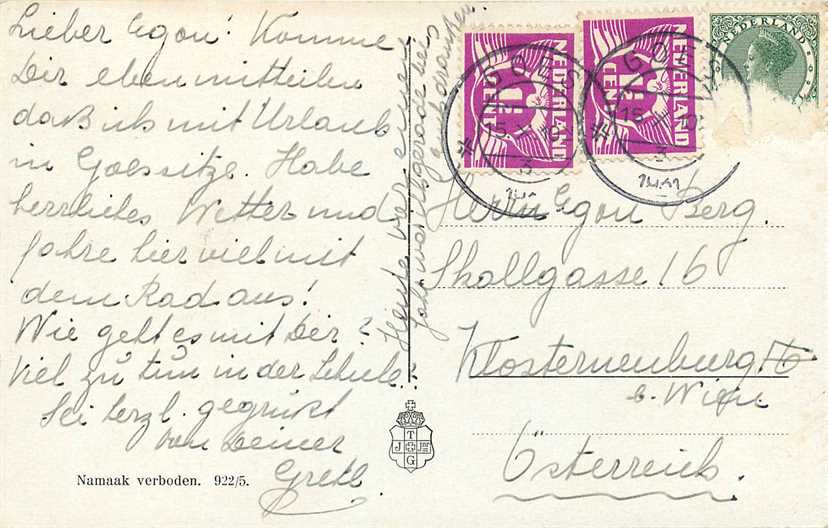 Lieber Egon! Komme
Dir eben mitteilen
daß ich mit Urlaub
in Goes sitze. Habe
herrliches Wetter und
fahre hier viel mit
dem Rad aus!
Wie geht es mit Dir?
Viel zu tun in der Schule.
Sei herzl. gegrüßt
von Deiner
Gretl.
Heute vor einem
Jahr war ich gerade bei
Namaak verboden. 922/5.
T
J
G
NEDERLAND
CENT
NEDERLAND
CENT
NEDERLAND
GOES
15
GOES
15
Herrn Egon Berg.
Skallgasse 16
Klosterneuburg
b. Wien
Österreich.